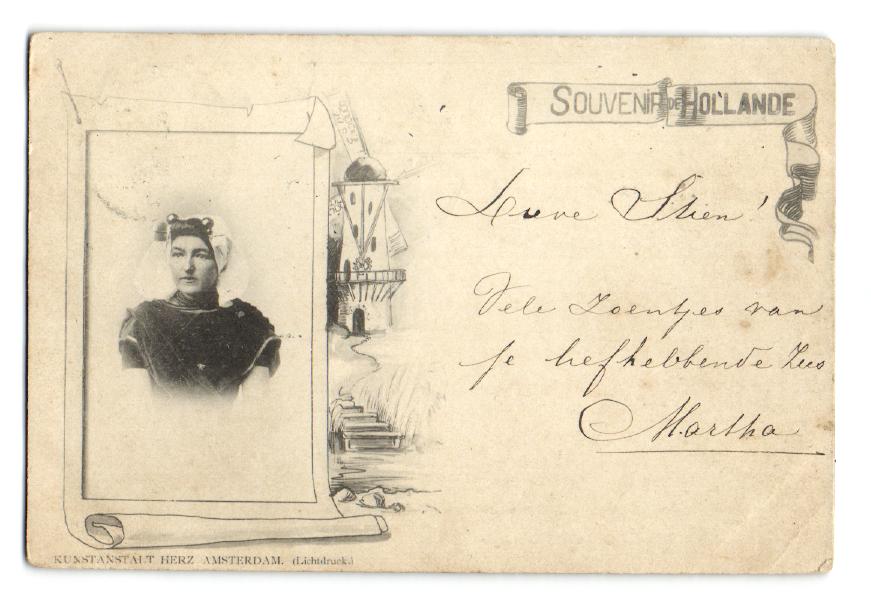 SOUVENIR DE HOLLANDE
Lieve Stien!
Vele Zoentjes van
je liefhebbende Zus
Martha
KUNSTANSTALT HERZ AMSTERDAM. (Lichtdruck.)